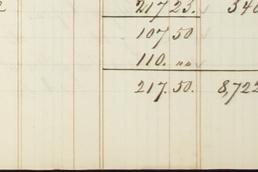 217 23. 340
107 50
110. „„
217. 50. 8,722